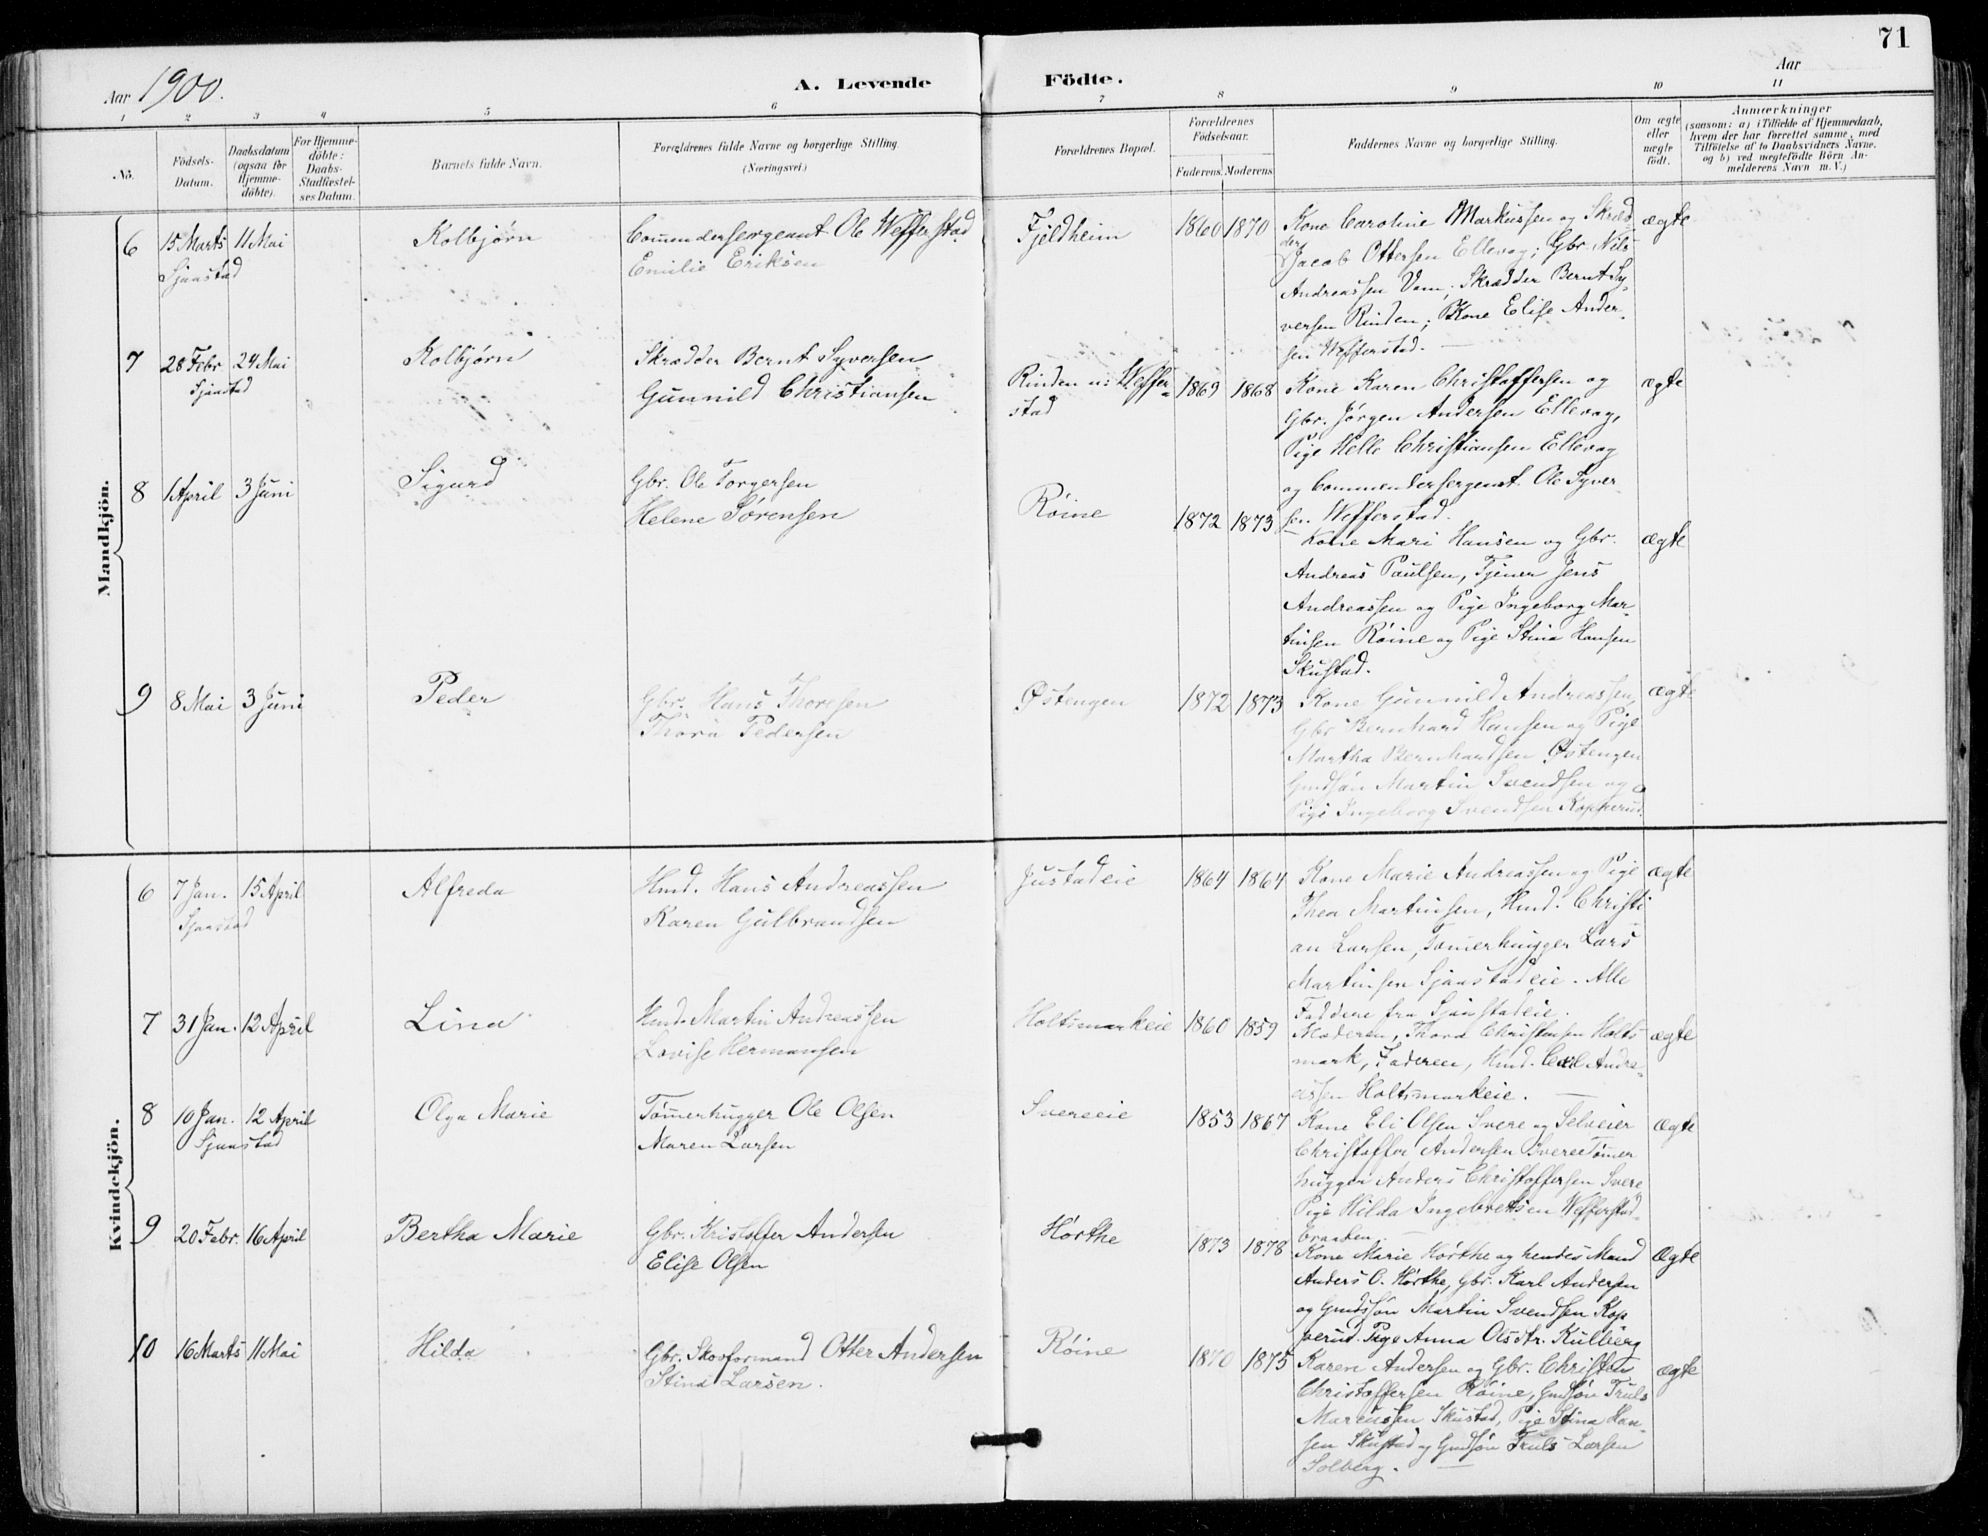 71
Aar 1900.
A. Levende Födte.
Aar
1 2 3 4 5 6 7 8 9 10 11
No.
Födsels-
Datum.
Daabsdatum
(ogsaa for
Hjemme-
döbte).
For Hjemme-
döbte:
Daabs-
Stadfæstel-
ses Datum.
Barnets fulde Navn.
Forældrenes fulde Navne og borgerlige Stilling.
(Næringsvei.)
Forældrenes Bopæl.
Forældrenes
Födselsaar.
Faderens. Moderens.
Faddernes Navne og borgerlige Stilling.
Om ægte
eller
uægte
födt.
Anmærkninger
(saasom: a) i Tilfælde af Hjemmedaab,
hvem der har forrettet samme, med
Tilföielse af to Daabsvidners Navne,
og b) ved uægtefödte Börn An-
melderens Navn m. V.)
Mandkjön.
6 15 Marts 11 Mai
Sjaastad
Kolbjørn
Commendersergeant Ole Wefferstad
Emilie Eriksen
Fjeldheim
1860 1870
Kone Caroline Markussen og Skræd
der
Jacob Ottersen Ellevog; Gbr. Nils
Andreassen Vam; Skrædder Bernt Sy-
versen Rinden; Kone Elise Ander-
sen Wefferstad.
ægte
7 28 Febr. 24 Mai
Sjaastad
Kolbjørn
Skrædder Bernt Syversen
Gunnild Christiansen
Rinden u. Weffer-
stad
1869 1868
Kone Karen Christoffersen og
Gbr. Jørgen Andersen Ellevog,
Pige Helle Christiansen Ellevog
og Commendersergeant Ole Syver-
sen Wefferstad.
ægte
8 1 April 3 Juni
Sigurd
Gbr. Ole Torgersen
Helene Sørensen
Røine
1872 1873
Kone Mari Hansen og Gbr.
Andreas Paulsen, Tjener Jens
Andreassen og Pige Ingeborg Mar-
tinsen Røine og Pige Stina Hansen
Skustad.
ægte
9 8 Mai 3 Juni
Peder
Gbr. Hans Thoresen
Thora Pedersen
Østengen
1872 1873
Kone Gunnild Andreassen,
Gbr Bernhard Hansen og Pige
Martha Bernhardsen Østengen
Gmdsøn Martin Svendsen og
Pige Ingeborg Svendsen Kopperud.
ægte
Kvindekjön.
6 7 Jan. 15 April
Sjaastad
Alfreda
Hmd. Hans Andreassen
Karen Gulbrandsen
Justadeie
1864 1864
Kone Marie Andreassen og Pige
Thea Martinsen, Hmd. Christi
an Larsen, Tømerhugger Lars
Martinsen Sjaastadeie. Alle
Faddere fra Sjaastadeie.
ægte
7 31 Jan. 12 April
Lina
Hmd. Martin Andreassen
Lovise Hermansen
Holtsmarkeie
1860 1859
Moderen, Thora Christensen Holts
mark, Faderen, Hmd. Carl Andre-
assen Holtsmarkeie.
ægte
8 10 Jan. 12 April
Sjaastad
Olga Marie
Tømerhugger Ole Olsen
Maren Larsen
Svereeie
1853 1867
Kone Eli Olsen Svere og Selveier
Christoffer Andersen Svere Tømer
hugger Anders Christoffersen Svere
Pige Hilda Ingebretsen Wefferstad-
braaten.
ægte
9 20 Febr. 16 April
Bertha Marie
Gbr. Kristoffer Andersen
Elise Olsen
Hørthe
1873 1878
Kone Marie Hørthe og hendes Mand
Anders O. Hørthe, Gbr. Karl Andersen
og Gmdssøn Martin Svendsen Kop
perud. Pige Anna Olsdtr. Kulberg
ægte
10 16 Marts 11 Mai
Hilda
Gbr. Skovformand Otter Andersen
Stina Larsen.
Røine
1870 1875
Karen Andersen og Gbr. Christen
Christoffersen Røine, Gmdsøn Truls
Marcussen Skustad, Pige Stina Han-
sen Skustad og Gmdsøn Truls Larsen
Solberg.
ægte